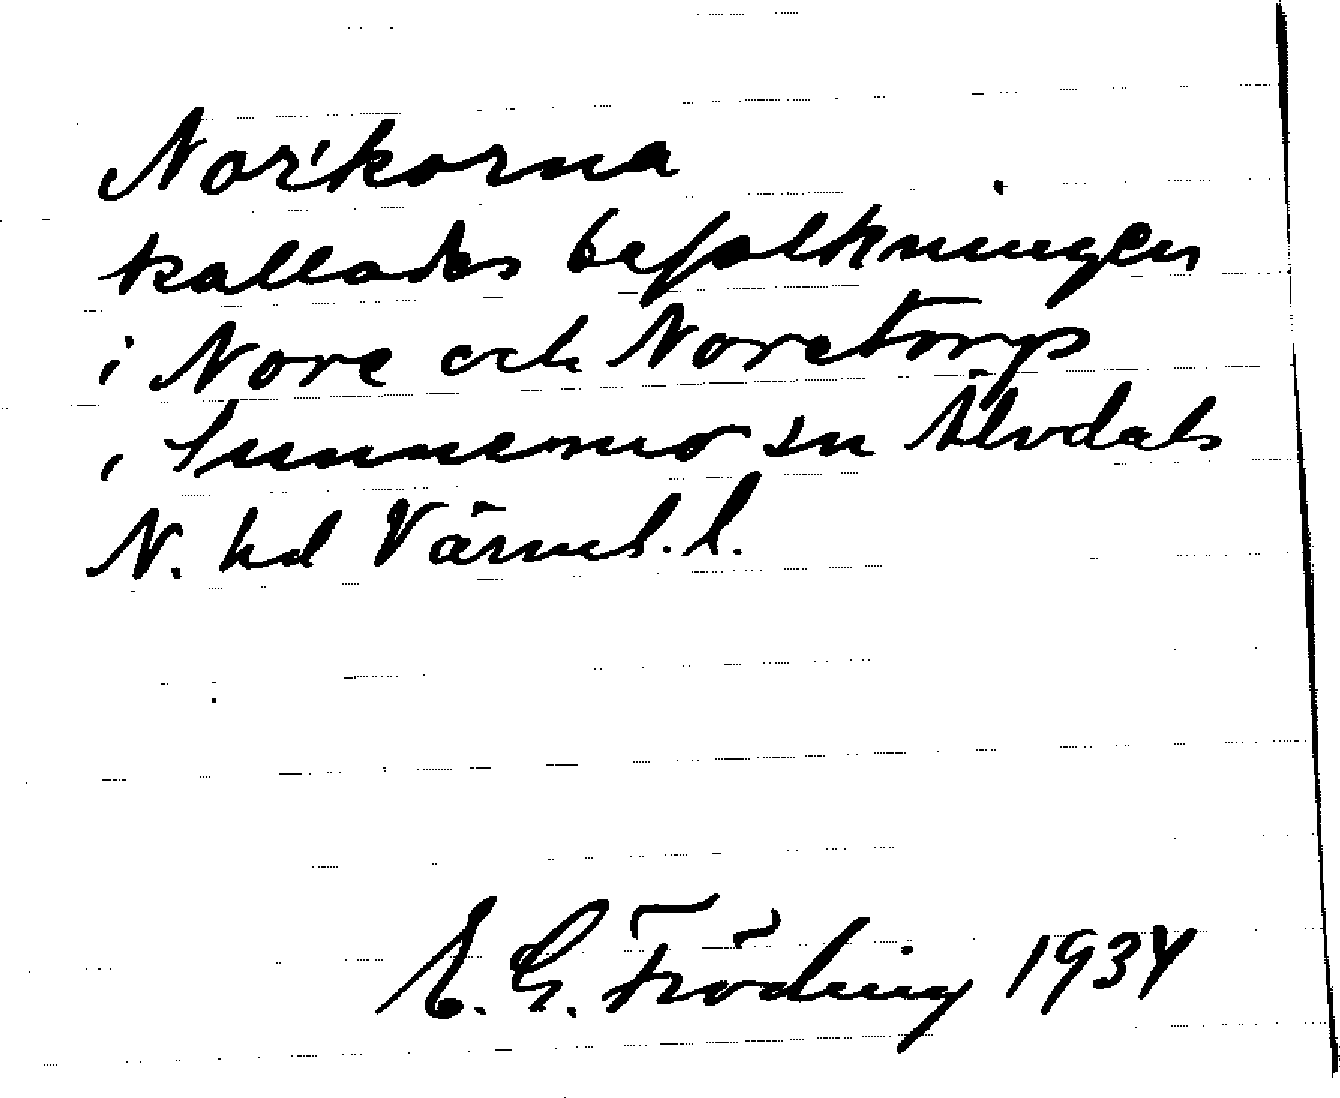 Nor'korna
kallades befolkningen
i Nore och Noretorp
i Sunnemo sn Älvdals
N. hd Värml. l.
E. G. Fröding 1934